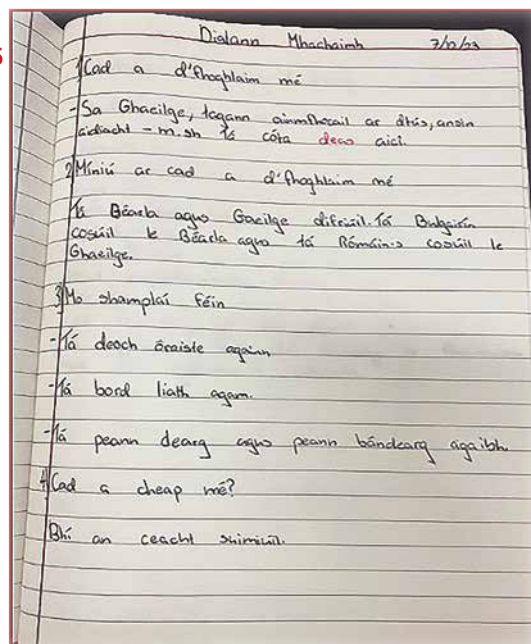 Dialann Mhachaimh 7/12/23
1 Cad a d'fhoghlaim mé
-Sa Ghaeilge, tagann ainmfhocail ar dtús, ansin
aidiacht - m.sh tá cóta deas aici.
2 Míniú ar cad a d'fhoghlaim mé
Tá Béarla agus Gaeilge difriúil. Tá Bulgáiris
cosúil le Béarla agus tá Rómáinis cosúil le
Ghaeilge.
3 Mo shamplaí féin
-Tá deoch óráiste againn
-Tá bord liath agam.
-Tá peann dearg agus peann bándearg agaibh
4 Cad a cheap mé?
Bhí an ceacht suimiúil.